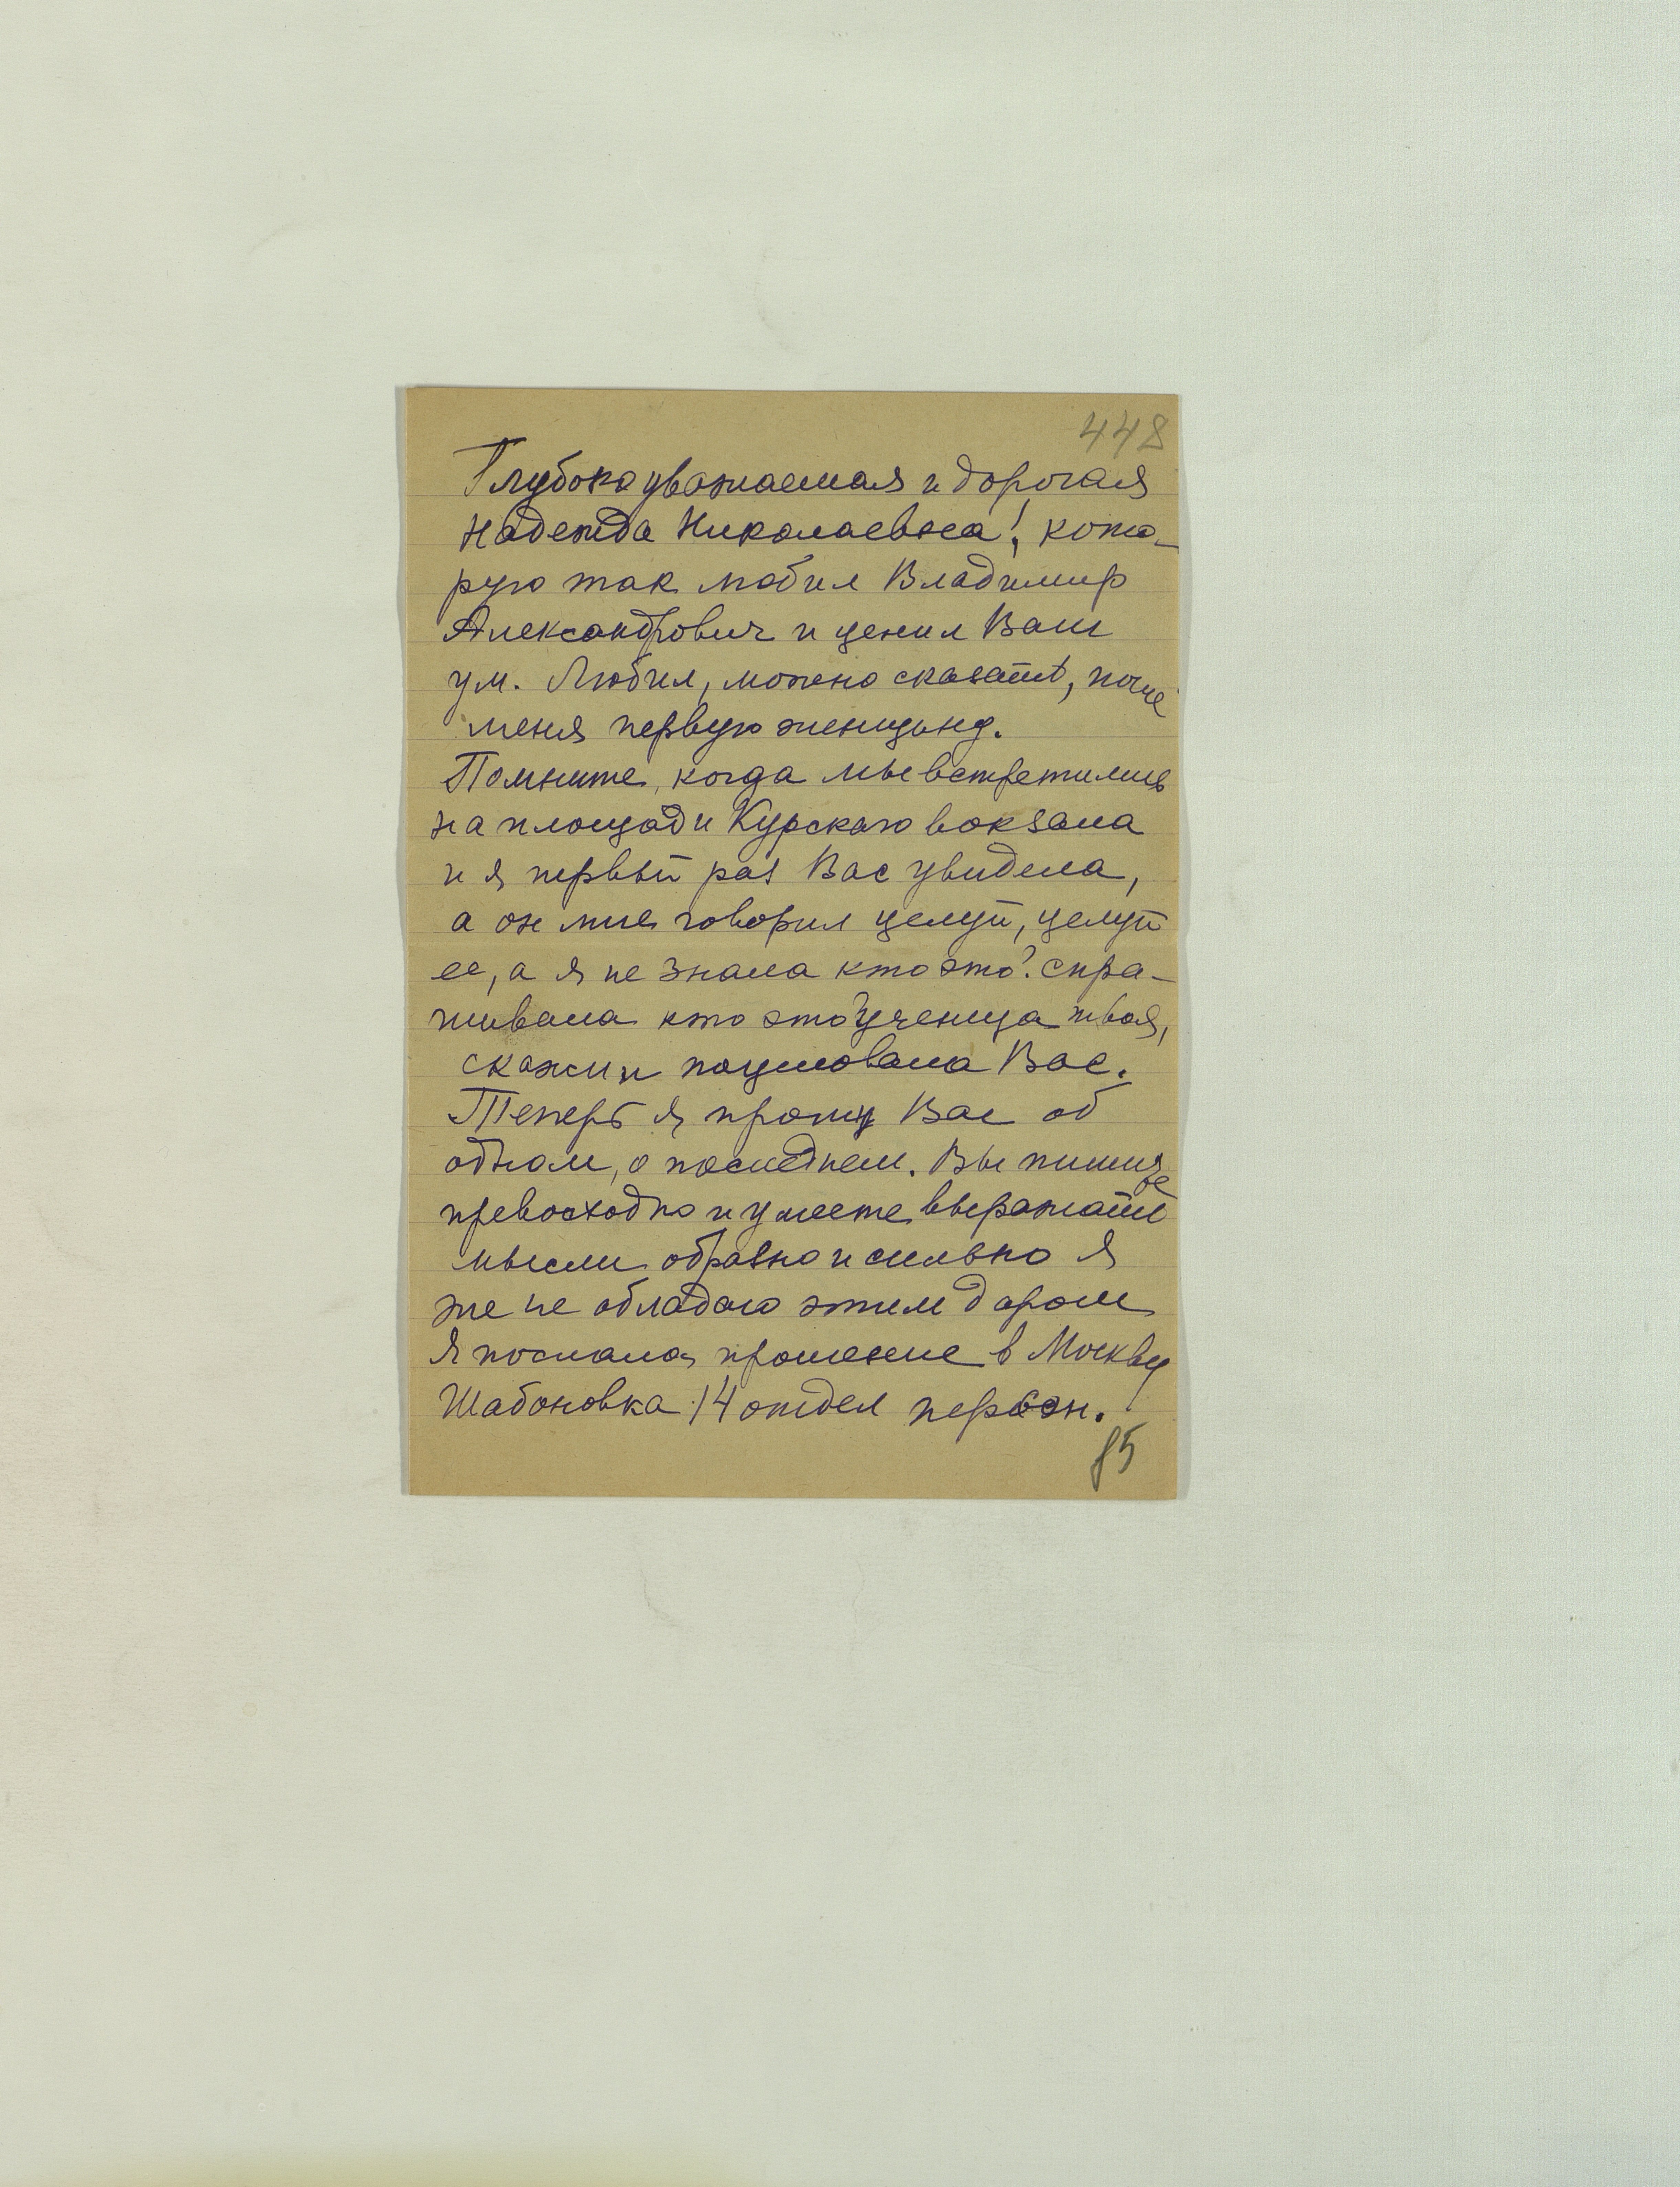 448
Глубокоуважаемая и дорогая
Надежда Николаевна! кото-
рую так любил Владимир
Александрович и ценил Ваш
ум. Любил, можно сказать, после
меня первую женщину.
Помните, когда мы встретились
на площади Курского вокзала
и я первый раз Вас увидела,
а он мне говорил целуй, целуй
ее, а я не знала кто это? спра-
шивала кто это? ученица твоя,
скажи и поцеловала Вас.
Теперь я прошу Вас об
одном, о последнем. Вы пишите
превосходно и умеете выражать
мысли образно и сильно я
же не обладаю этим даром
Я послала прошение в Москву
Шабоновка 14 отдел персон.
85